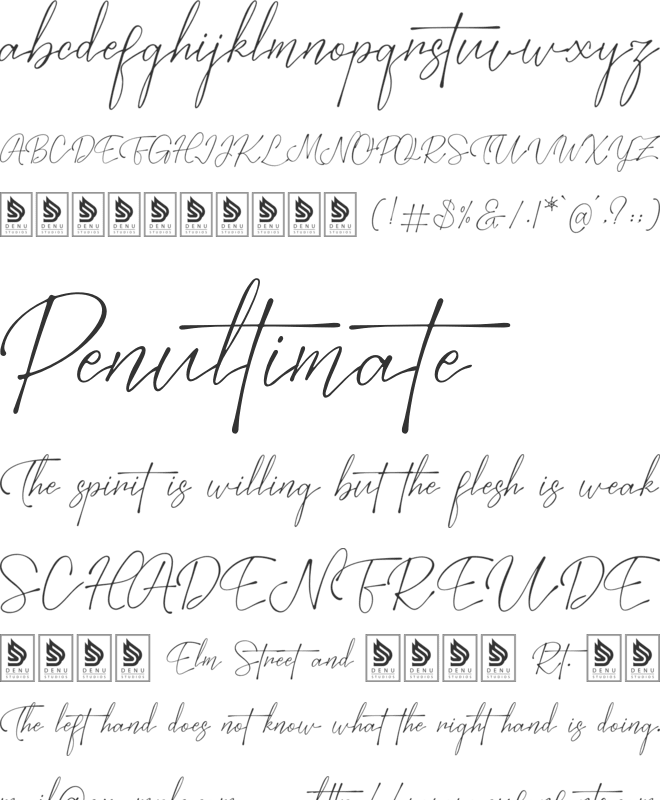 abcdefghijklmnopqrstuvwxyz
ABCDEFGHIJKLMNOPQRSTUVWXYZ
DENU STUDIOS DENU STUDIOS DENU STUDIOS DENU STUDIOS DENU STUDIOS DENU STUDIOS DENU STUDIOS DENU STUDIOS DENU STUDIOS DENU STUDIOS (!#$%&/.|*`@'.?:;)
Penultimate
The spirit is willing but the flesh is weak
SCHADENFREUDE
DENU STUDIOS DENU STUDIOS DENU STUDIOS DENU STUDIOS Elm Street and DENU STUDIOS DENU STUDIOS DENU STUDIOS DENU STUDIOS Rt. DENU STUDIOS DENU STUDIOS
The left hand does not know what the right hand is doing.